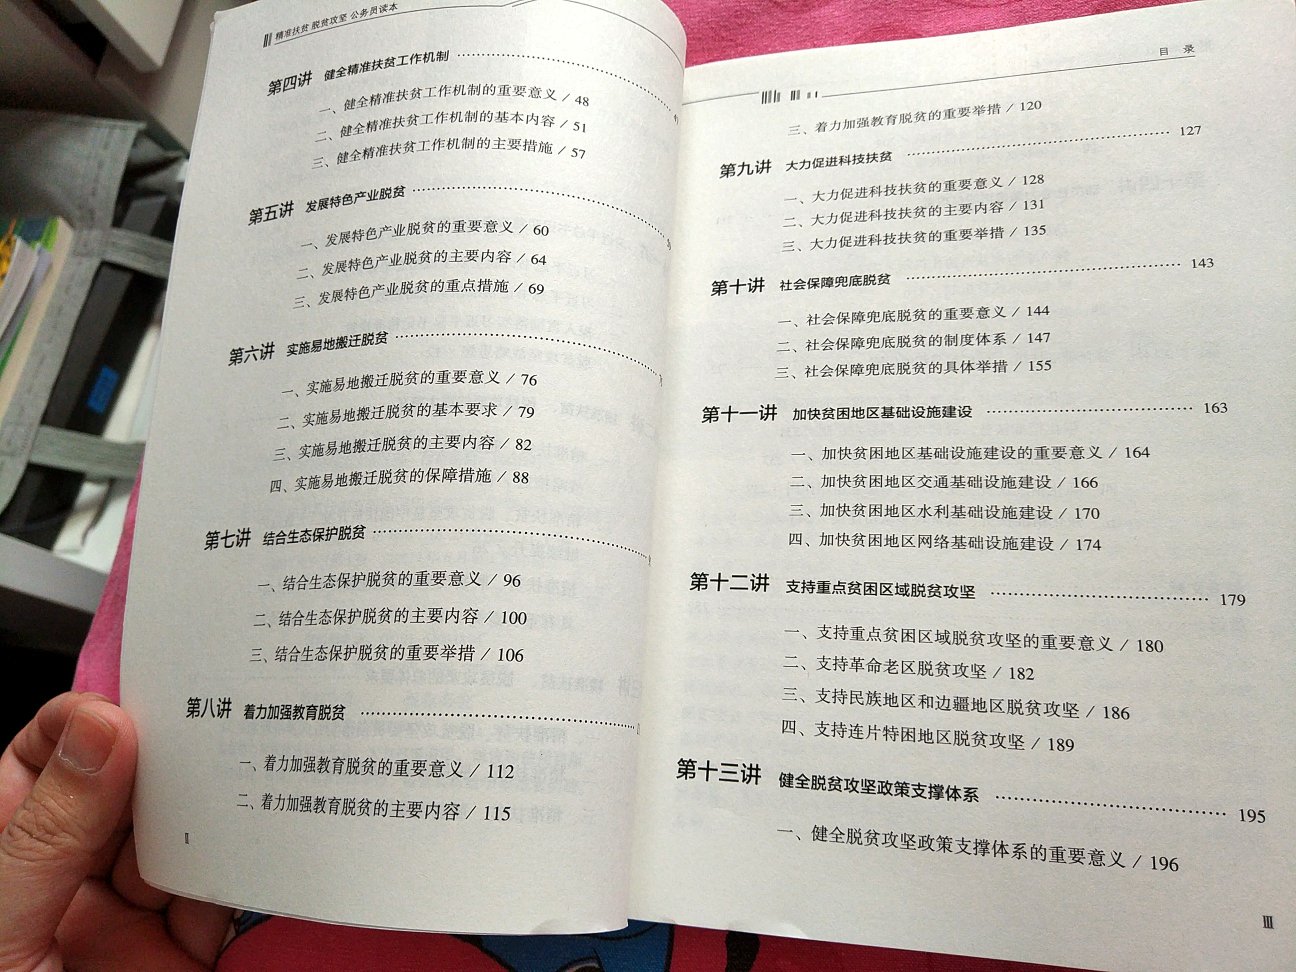 精准扶贫 脱贫攻坚 公务员读本
第四讲 健全精准扶贫工作机制
一、健全精准扶贫工作机制的重要意义 / 48
二、健全精准扶贫工作机制的基本内容 / 51
三、健全精准扶贫工作机制的主要措施 / 57
第五讲 发展特色产业脱贫
一、发展特色产业脱贫的重要意义 / 60
二、发展特色产业脱贫的主要内容 / 64
三、发展特色产业脱贫的重点措施 / 69
第六讲 实施易地搬迁脱贫
一、实施易地搬迁脱贫的重要意义 / 76
二、实施易地搬迁脱贫的基本要求 / 79
三、实施易地搬迁脱贫的主要内容 / 82
四、实施易地搬迁脱贫的保障措施 / 88
第七讲 结合生态保护脱贫
一、结合生态保护脱贫的重要意义 / 96
二、结合生态保护脱贫的主要内容 / 100
三、结合生态保护脱贫的重要举措 / 106
第八讲 着力加强教育脱贫
一、着力加强教育脱贫的重要意义 / 112
二、着力加强教育脱贫的主要内容 / 115
II
目 录
三、着力加强教育脱贫的重要举措 / 120
第九讲 大力促进科技扶贫 127
一、大力促进科技扶贫的重要意义 / 128
二、大力促进科技扶贫的主要内容 / 131
三、大力促进科技扶贫的重要举措 / 135
第十讲 社会保障兜底脱贫 143
一、社会保障兜底脱贫的重要意义 / 144
二、社会保障兜底脱贫的制度体系 / 147
三、社会保障兜底脱贫的具体举措 / 155
第十一讲 加快贫困地区基础设施建设 163
一、加快贫困地区基础设施建设的重要意义 / 164
二、加快贫困地区交通基础设施建设 / 166
三、加快贫困地区水利基础设施建设 / 170
四、加快贫困地区网络基础设施建设 / 174
第十二讲 支持重点贫困区域脱贫攻坚 179
一、支持重点贫困区域脱贫攻坚的重要意义 / 180
二、支持革命老区脱贫攻坚 / 182
三、支持民族地区和边疆地区脱贫攻坚 / 186
四、支持连片特困地区脱贫攻坚 / 189
第十三讲 健全脱贫攻坚政策支撑体系 195
一、健全脱贫攻坚政策支撑体系的重要意义 / 196
III